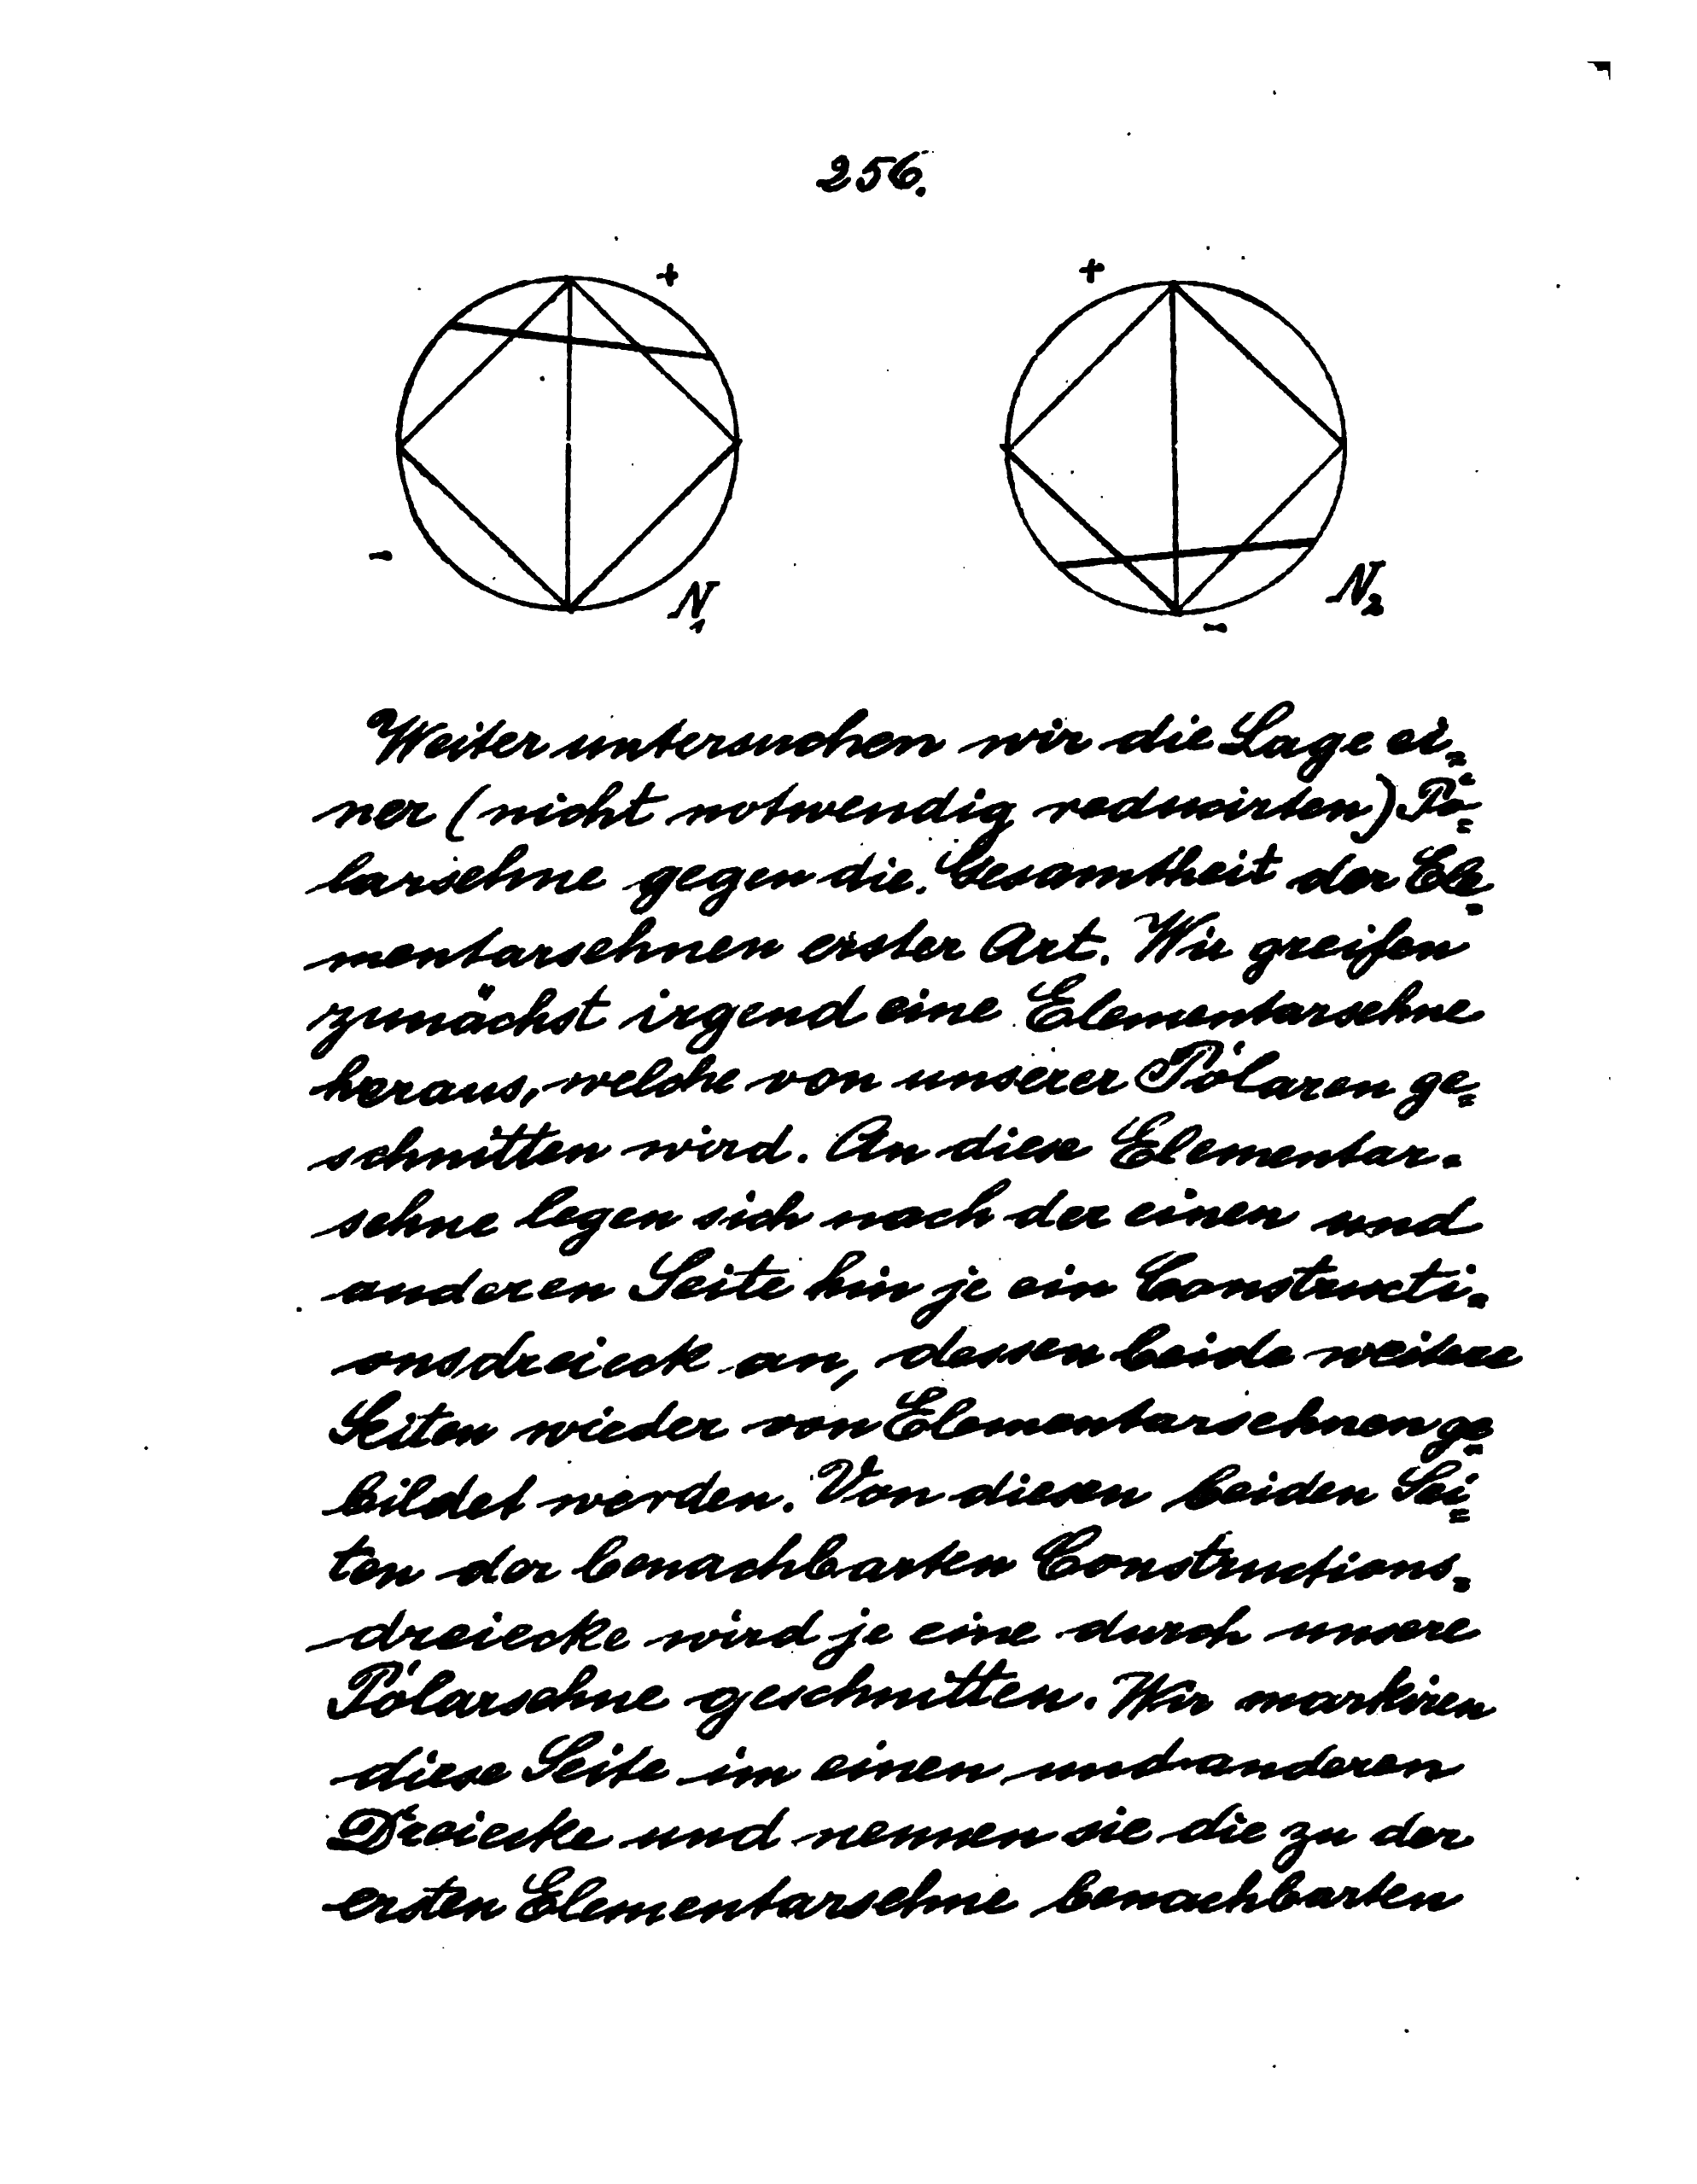 256.
+
+
-
N₁
N₂
-
Weiter untersuchen wir die Lage ei=
ner (nicht notwendig reducirten) Po=
larsehne gegen die Gesamtheit der Ele=
mentarsehnen erster Art. Wir greifen
zunächst irgend eine Elementarsehne
heraus, welche von unserer Polaren ge=
schnitten wird. An diese Elementar=
sehne legen sich nach der einen und
anderen Seite hin je ein Constructi=
onsdreieck an, dessen beide weitere
Seiten wieder von Elementarsehnen ge=
bildet werden. Von diesen beiden Sei=
ten der benachbarten Constructions=
dreiecke wird je eine durch unsere
Polarsehne geschnitten. Wir markiren
diese Seite im einen und anderen
Dreiecke und nennen sie die zu der
ersten Elementarsehne benachbarten